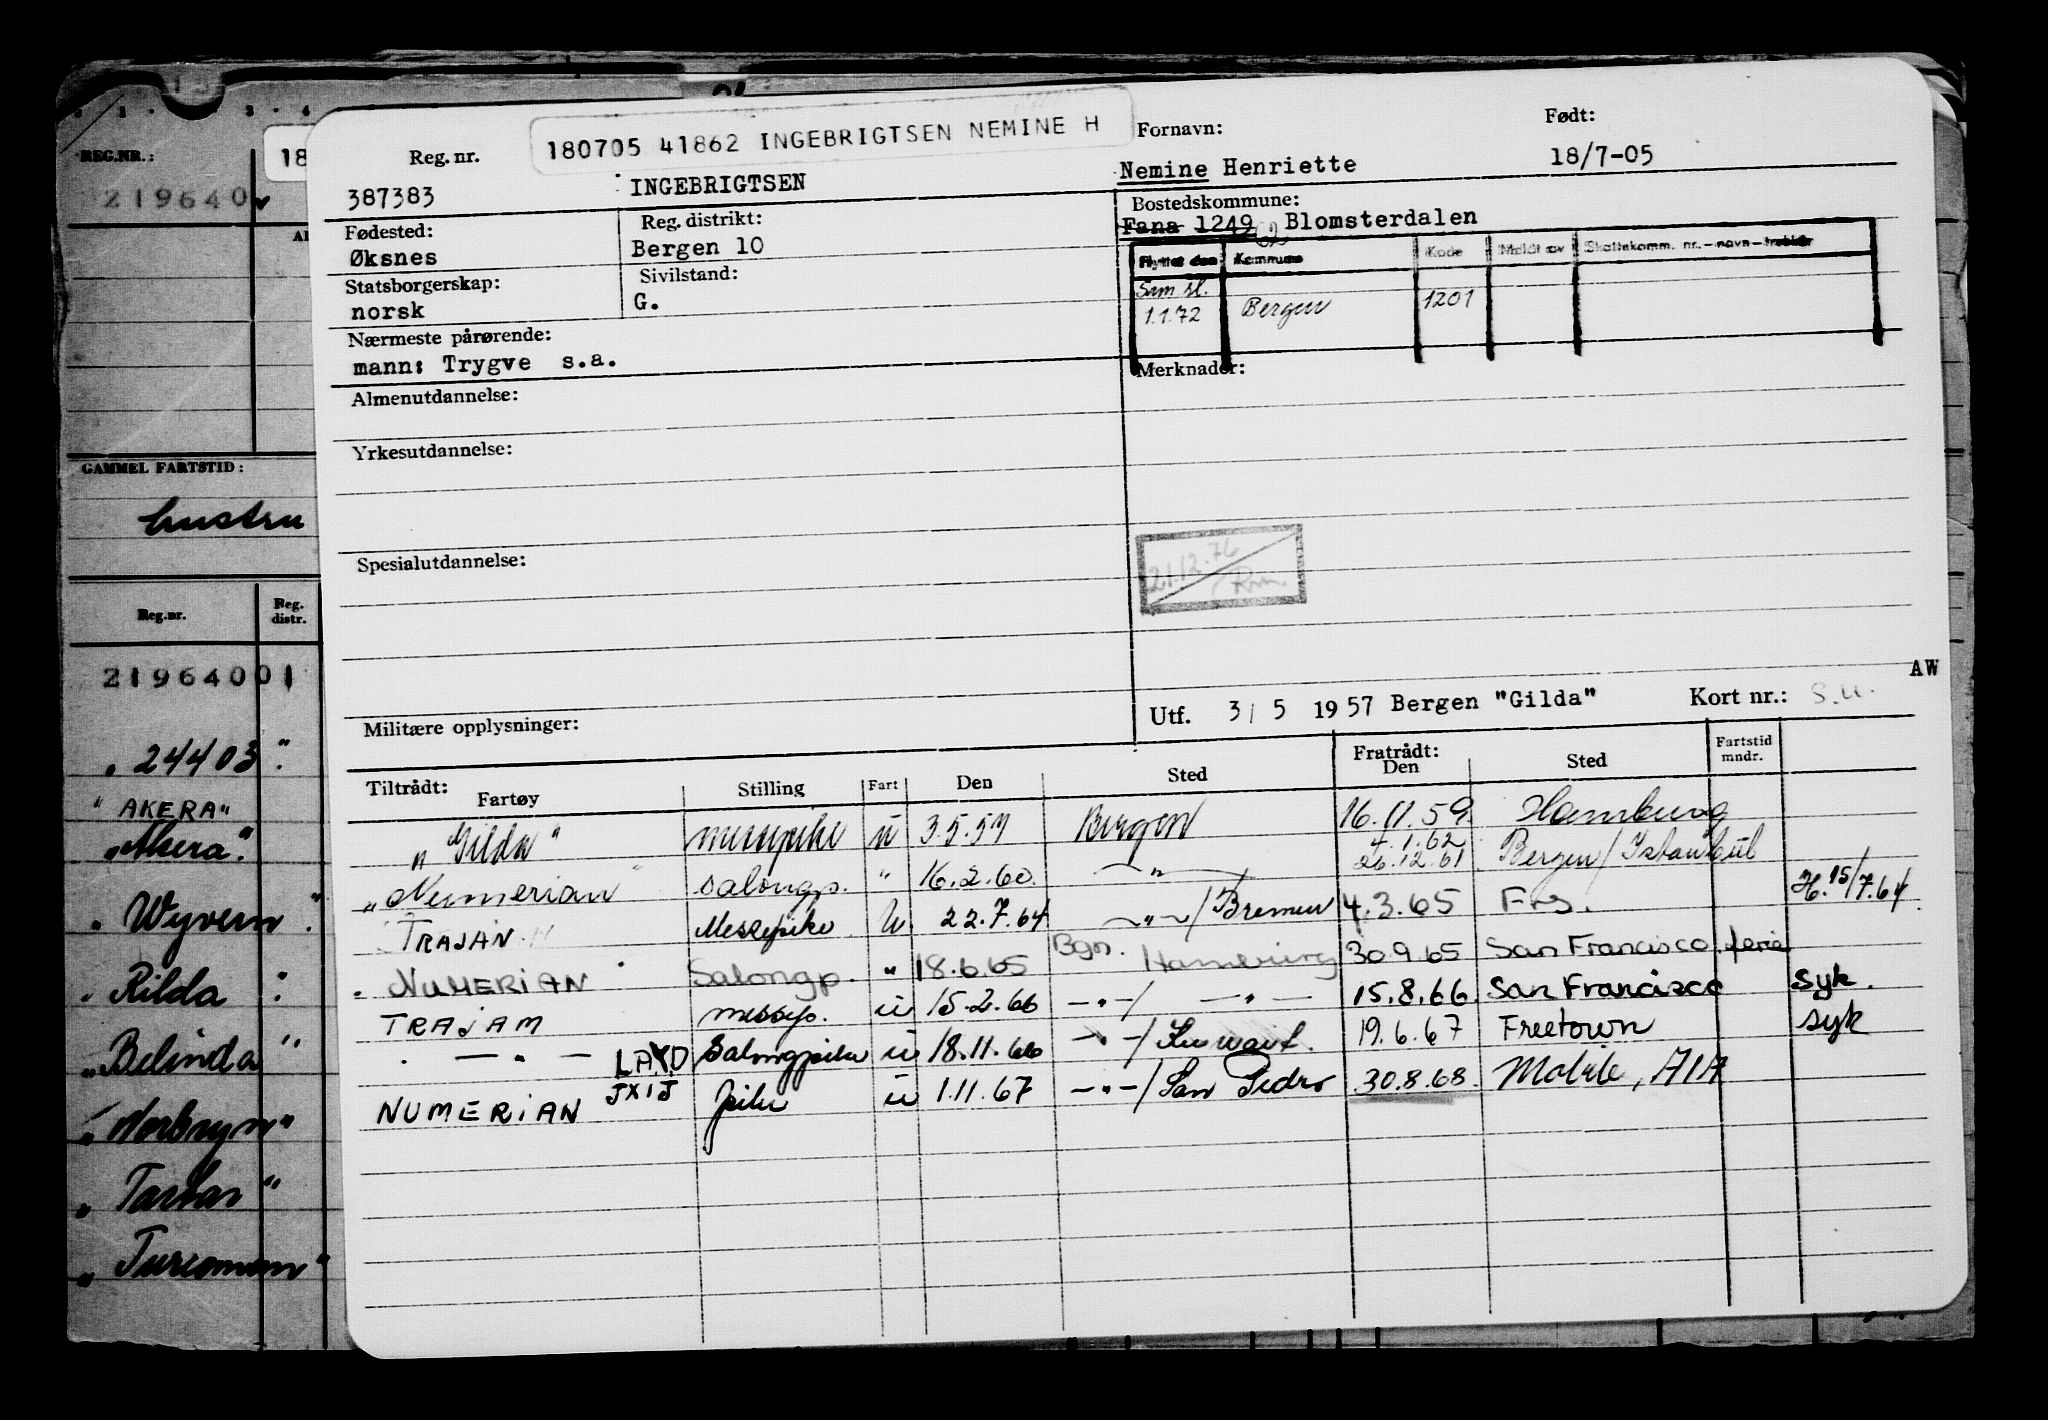 REG.NR.:
219640
18
GAMMEL FARTSTID:
hustru
Reg.nr. Reg. distr.
21964001
" 24403 "
" AKERA "
" Akera "
" Wyvern "
" Rilda "
" Belinda "
" Norbryn "
" Tartar "
" Turcoman "
Reg. nr. 180705 41862 INGEBRIGTSEN NEMINE H Fornavn: Født:
387383 INGEBRIGTSEN Nemine Henriette 18/7-05
Fødested: Reg. distrikt: Bostedskommune:
Øksnes Bergen 10 Fana 1249 Blomsterdalen
Statsborgerskap: Sivilstand: Flyttet den Kommune Kode Meldt av Skattekomm. nr.-navn-trekkår
norsk G. Sam sl. 1.1.72 Bergen 1201
Nærmeste pårørende:
mann: Trygve s.a.
Merknader:
Almenutdannelse:
Yrkesutdannelse:
Spesialutdannelse:
21.12.76
AW
Militære opplysninger: Utf. 3/5 1957 Bergen "Gilda" Kort nr.: S.U.
Tiltrådt: Fartøy Stilling Fart Den Sted Fratrådt: Den Sted Fartstid mndr.
"Gilda" messepike u 3.5.57 Bergen 16.11.59 Hamburg
4.1.62
"Numerian" salongp. " 16.2.60 —"— 26.12.61 Bergen/Istanbul
TRAJAN Messepike u 22.7.64 —"—/Bremen 4.3.65 Frs. H. 15/7.64
" NUMERIAN " Salongp. " 18.6.65 Bgn. Hamburg 30.9.65 San Francisco ferie
TRAJAM messp. u 15.2.66 —"—/ —"— 15.8.66 San Francisco syk.
— " — LAYD Salongpike u 18.11.66 —"—/Kuwait. 19.6.67 Freetown syk
NUMERIAN JXIJ pike u 1.11.67 —"—/San Pedro 30.8.68 Mobile, AlA